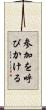 参加を呼びかける